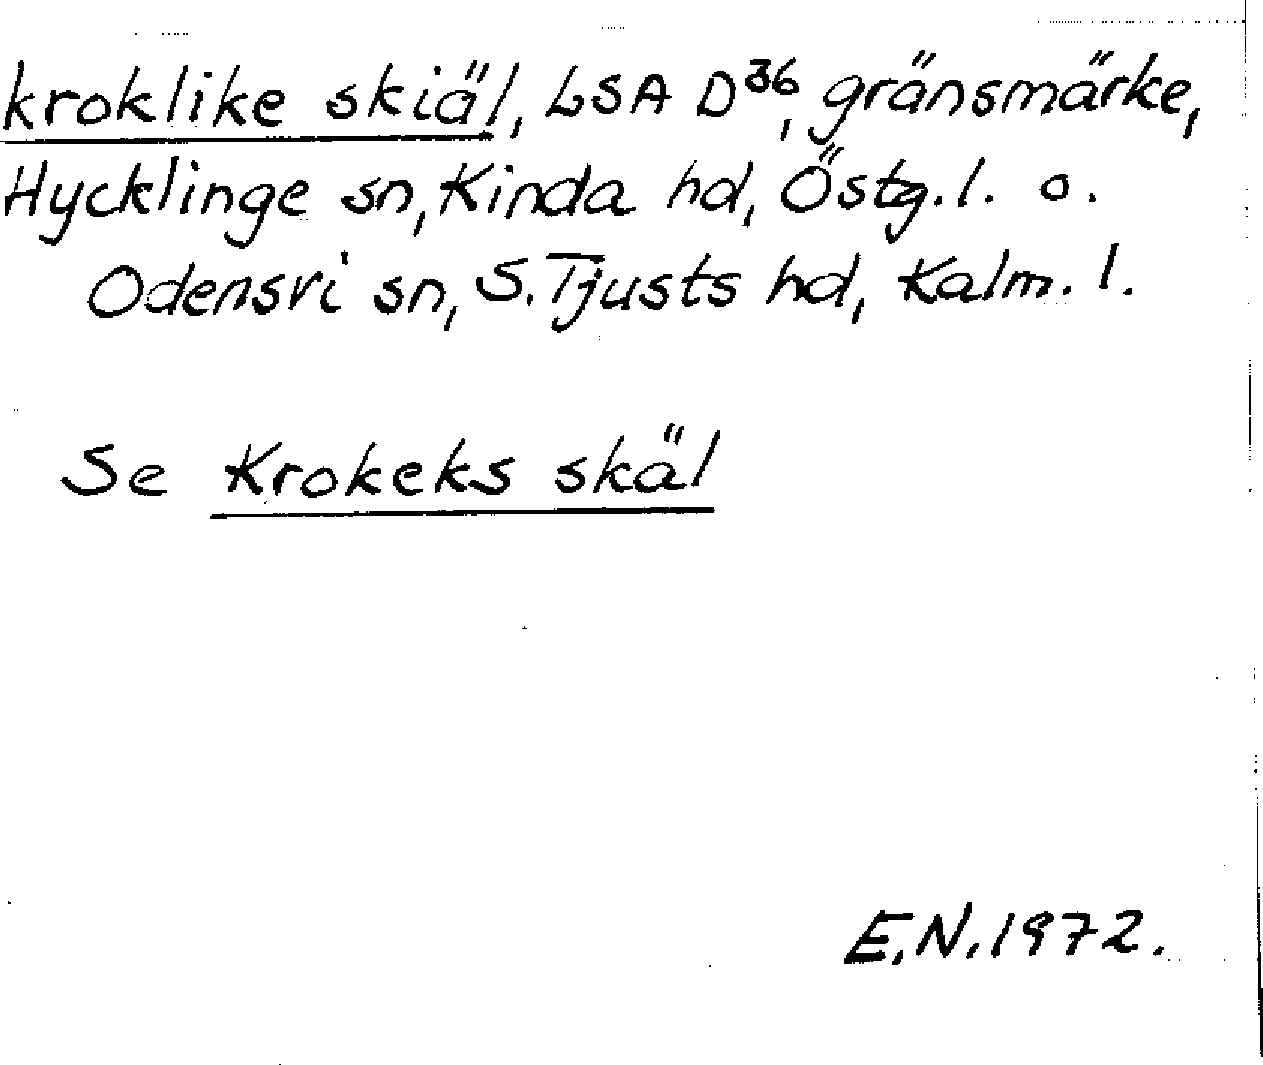 kroklike skiäl, LSA D36, gränsmärke,
Hycklinge sn, Kinda hd, Östg.l. o.
Odensvi sn, S. Tjusts hd, Kalm. l.
Se Krokeks skäl
E.N. 1972.